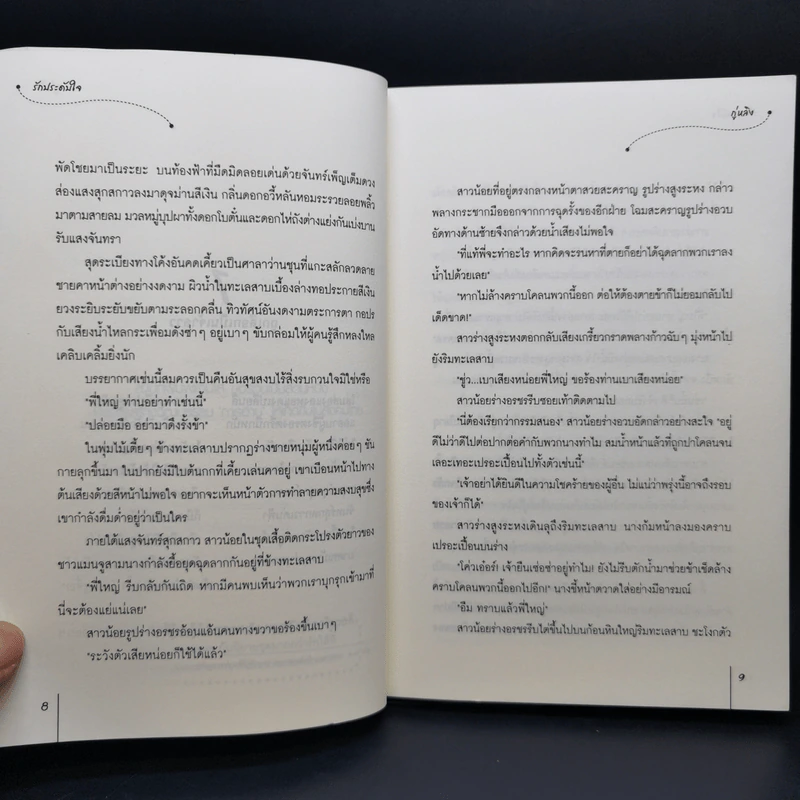 รักประดับใจ
พัดโชยมาเป็นระยะ บนท้องฟ้าที่มืดมิดลอยเด่นด้วยจันทร์เพ็ญเต็มดวง
ส่องแสงสุกสกาวลงมาดุจม่านสีเงิน กลิ่นดอกอวี้หลันหอมรวยรวยลอยพลิ้ว
มาตามสายลม มวลหมู่บุปผาทั้งดอกโบตั๋นและดอกไห่ถังต่างแย่งกันเบ่งบาน
รับแสงจันทรา
สุดระเบียงทางโค้งอันคดเคี้ยวเป็นศาลาว่านชุนที่แกะสลักลวดลาย
ชายคาหน้าต่างอย่างงดงาม ผิวน้ำในทะเลสาบเบื้องล่างทอประกายสีเงิน
ยวงระยิบระยับขยับตามระลอกคลื่น ทิวทัศน์อันงดงามตระการตา กอปร
กับเสียงน้ำไหลกระเพื่อมดังซ่าๆ อยู่เบาๆ ขับกล่อมให้ผู้คนรู้สึกหลงใหล
เคลิบเคลิ้มยิ่งนัก
บรรยากาศเช่นนี้สมควรเป็นคืนอันสุขสงบไร้สิ่งรบกวนใจมิใช่หรือ
"พี่ใหญ่ ท่านอย่าทำเช่นนี้"
"ปล่อยมือ อย่ามาดึงรั้งข้า"
ในพุ่มไม้เตี้ยๆ ข้างทะเลสาบปรากฏร่างชายหนุ่มผู้หนึ่งค่อยๆ ขัน
กายลุกขึ้นมา ในปากยังมีใบต้นกกที่เคี้ยวเล่นคาอยู่ เขาเบือนหน้าไปทาง
ต้นเสียงด้วยสีหน้าไม่พอใจ อยากจะเห็นหน้าตัวการทำลายความสงบสุขซึ่ง
เขากำลังดื่มด่ำอยู่ว่าเป็นใคร
ภายใต้แสงจันทร์สุกสกาว สาวน้อยในชุดเสื้อติดกระโปรงตัวยาวของ
ชาวแมนจูสามนางกำลังยื้อยุดฉุดลากกันอยู่ที่ข้างทะเลสาบ
"พี่ใหญ่ รีบกลับกันเถิด หากมีคนพบเห็นว่าพวกเราบุกรุกเข้ามาที่
นี่จะต้องแย่แน่เลย"
สาวน้อยรูปร่างอรชรอ้อนแอ้นคนทางขวาขอร้องขึ้นเบาๆ
"ระวังตัวเสียหน่อยก็ใช้ได้แล้ว"
8
กู่หลิง
สาวน้อยที่อยู่ตรงกลางหน้าตาสวยสะคราญ รูปร่างสูงระหง กล่าว
พลางกระชากมือออกจากการฉุดรั้งของอีกฝ่าย โฉมสะคราญรูปร่างอวบ
อัดทางด้านซ้ายจึงกล่าวด้วยน้ำเสียงไม่พอใจ
"ที่แท้พี่จะทำอะไร หากคิดจะรนหาที่ตายก็อย่าได้ฉุดลากพวกเราลง
น้ำไปด้วยเลย"
"หากไม่ล้างคราบโคลนพวกนี้ออก ต่อให้ต้องตายข้าก็ไม่ยอมกลับไป
เด็ดขาด!"
สาวร่างสูงระหงตอกกลับเสียงเกรี้ยวกราดพลางก้าวฉับๆ มุ่งหน้าไป
ยังริมทะเลสาบ
"ชู่ว...เบาเสียงหน่อยพี่ใหญ่ ขอร้องท่านเบาเสียงหน่อย"
สาวน้อยร่างอรชรรีบซอยเท้าติดตามไป
"นี่ต้องเรียกว่ากรรมสนอง" สาวน้อยร่างอวบอัดกล่าวอย่างสะใจ "อยู่
ดีไม่ว่าดีไปต่อปากต่อคำกับพวกนางทำไม สมน้ำหน้าแล้วที่ถูกปาโคลนจน
เลอะเทอะเปรอะเปื้อนไปทั้งตัวเช่นนี้"
"เจ้าอย่าได้ยินดีในความโชคร้ายของผู้อื่น ไม่แน่ว่าพรุ่งนี้อาจถึงรอบ
ของเจ้าก็ได้"
สาวร่างสูงระหงเดินลุถึงริมทะเลสาบ นางก้มหน้าลงมองคราบ
เปรอะเปื้อนบนร่าง
"โค่วเอ๋อร์! เจ้ายืนเซ่อซ่าอยู่ทำไม! ยังไม่รีบตักน้ำมาช่วยข้าเช็ดล้าง
คราบโคลนพวกนี้ออกไปอีก!" นางชี้หน้าตวาดใส่อย่างมีอารมณ์
"อืม ทราบแล้วพี่ใหญ่"
สาวน้อยร่างอรชรรีบไต่ขึ้นไปบนก้อนหินใหญ่ริมทะเลสาบ ชะโงกตัว
9